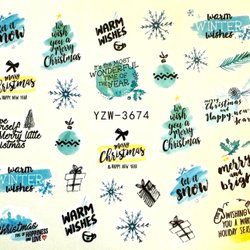 let it
Snow
I
wish
you a
Merry
Christmas
WARM
WISHES
WINTER
warm
wishes
it's the most
WONDERFUL
TIME OF
THE YEAR
merry
Christmas
& HAPPY NEW YEAR
YZW-3674
WARM
WISHES
Merry little
Christmas
merry
Christmas
& HAPPY NEW YEAR
Christmas
Happy new
year
warm
wishes
WINTER
let it
Snow
merry
and
Christmas
WARM
WISHES
let it
Snow
WISHING
YOU A
HOLIDAY SEASON